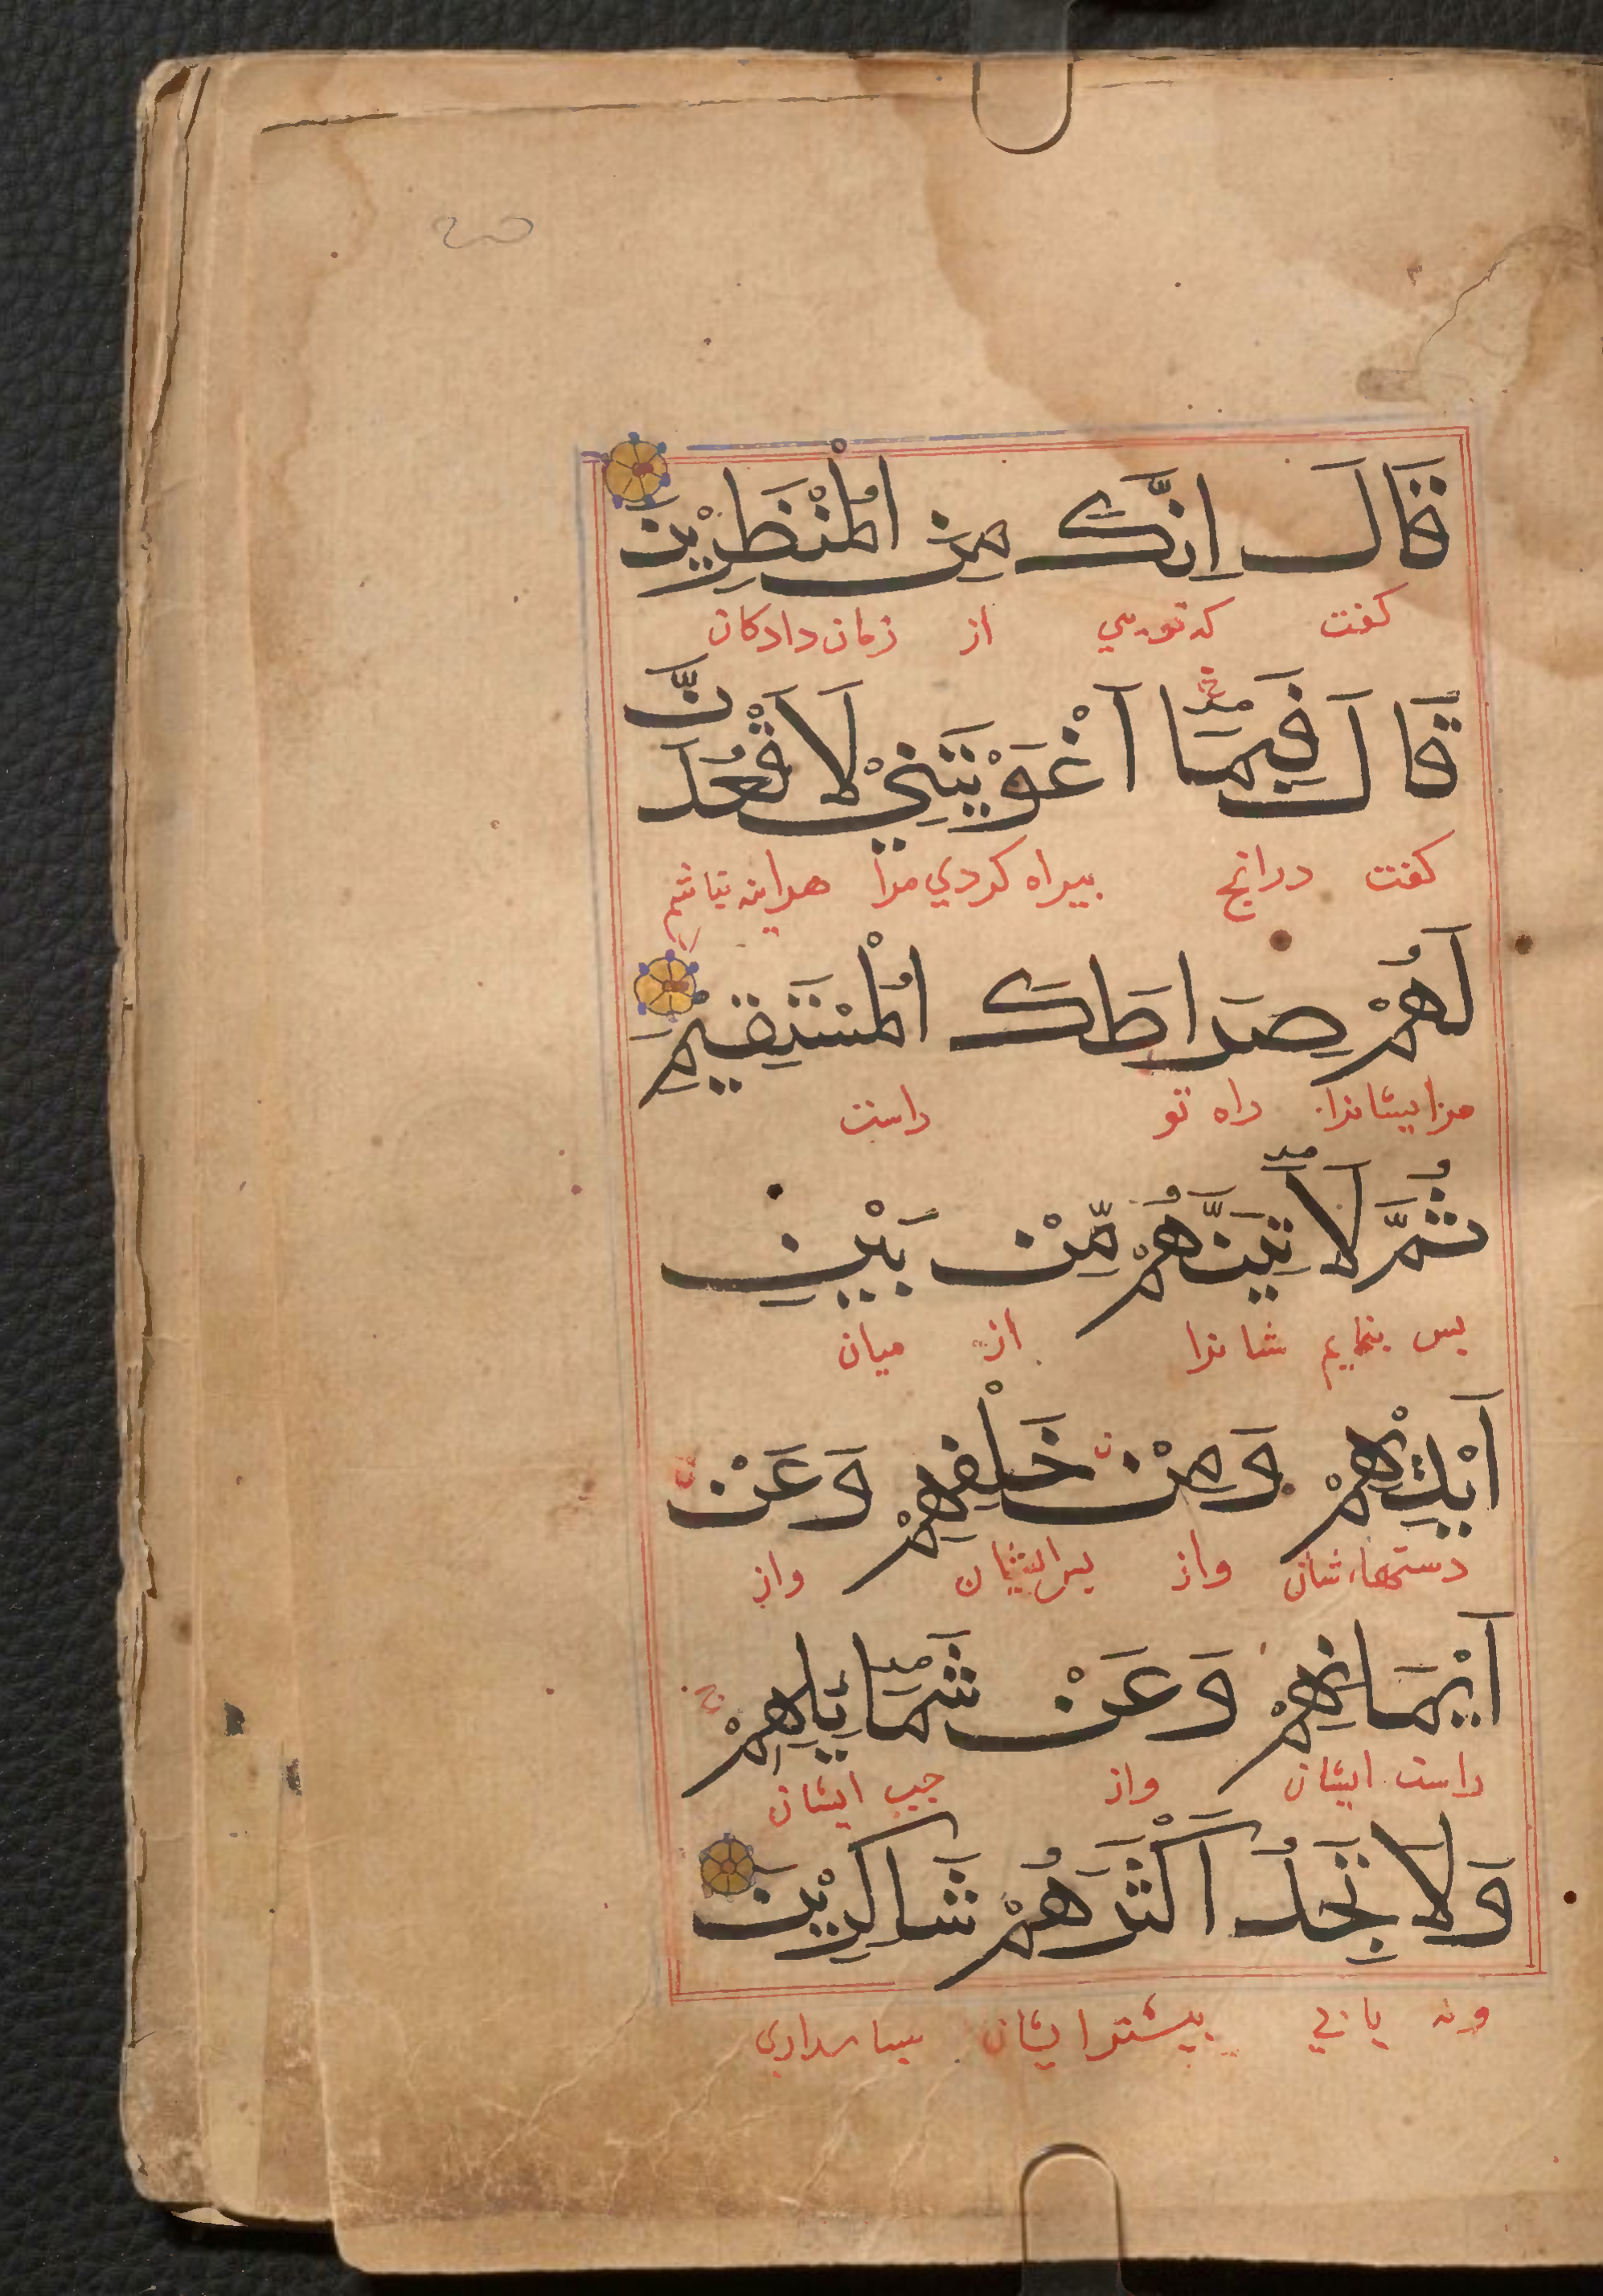 قَالَ اِنَّكَ مِنَ الْمُنْظَرِيْنَ
كفت كه تويي از زمان دادكان
قَالَ فَبِمَا اَغْوَيْتَنِيْ لَاَقْعُدَنَّ
كفت درانج بيراه كردي مرا هراينه
لَهُمْ صِرَاطَكَ الْمُسْتَقِيْمَ
مرايشانرا راه تو راست
ثُمَّ لَاٰتِيَنَّهُمْ مِّنْ بَيْنِ
بس بنمايم شانرا از ميان
اَيْدِيْهِمْ وَمِنْ خَلْفِهِمْ وَعَنْ
دستهاء شان واز بس ايشان واز
اَيْمَانِهِمْ وَعَنْ شَمَايِٕلِهِمْ
راست ايشان واز جب ايشان
وَلَا تَجِدُ اَكْثَرَهُمْ شَاكِرِيْنَ
ونه يابي بيشترايشان سباسداري